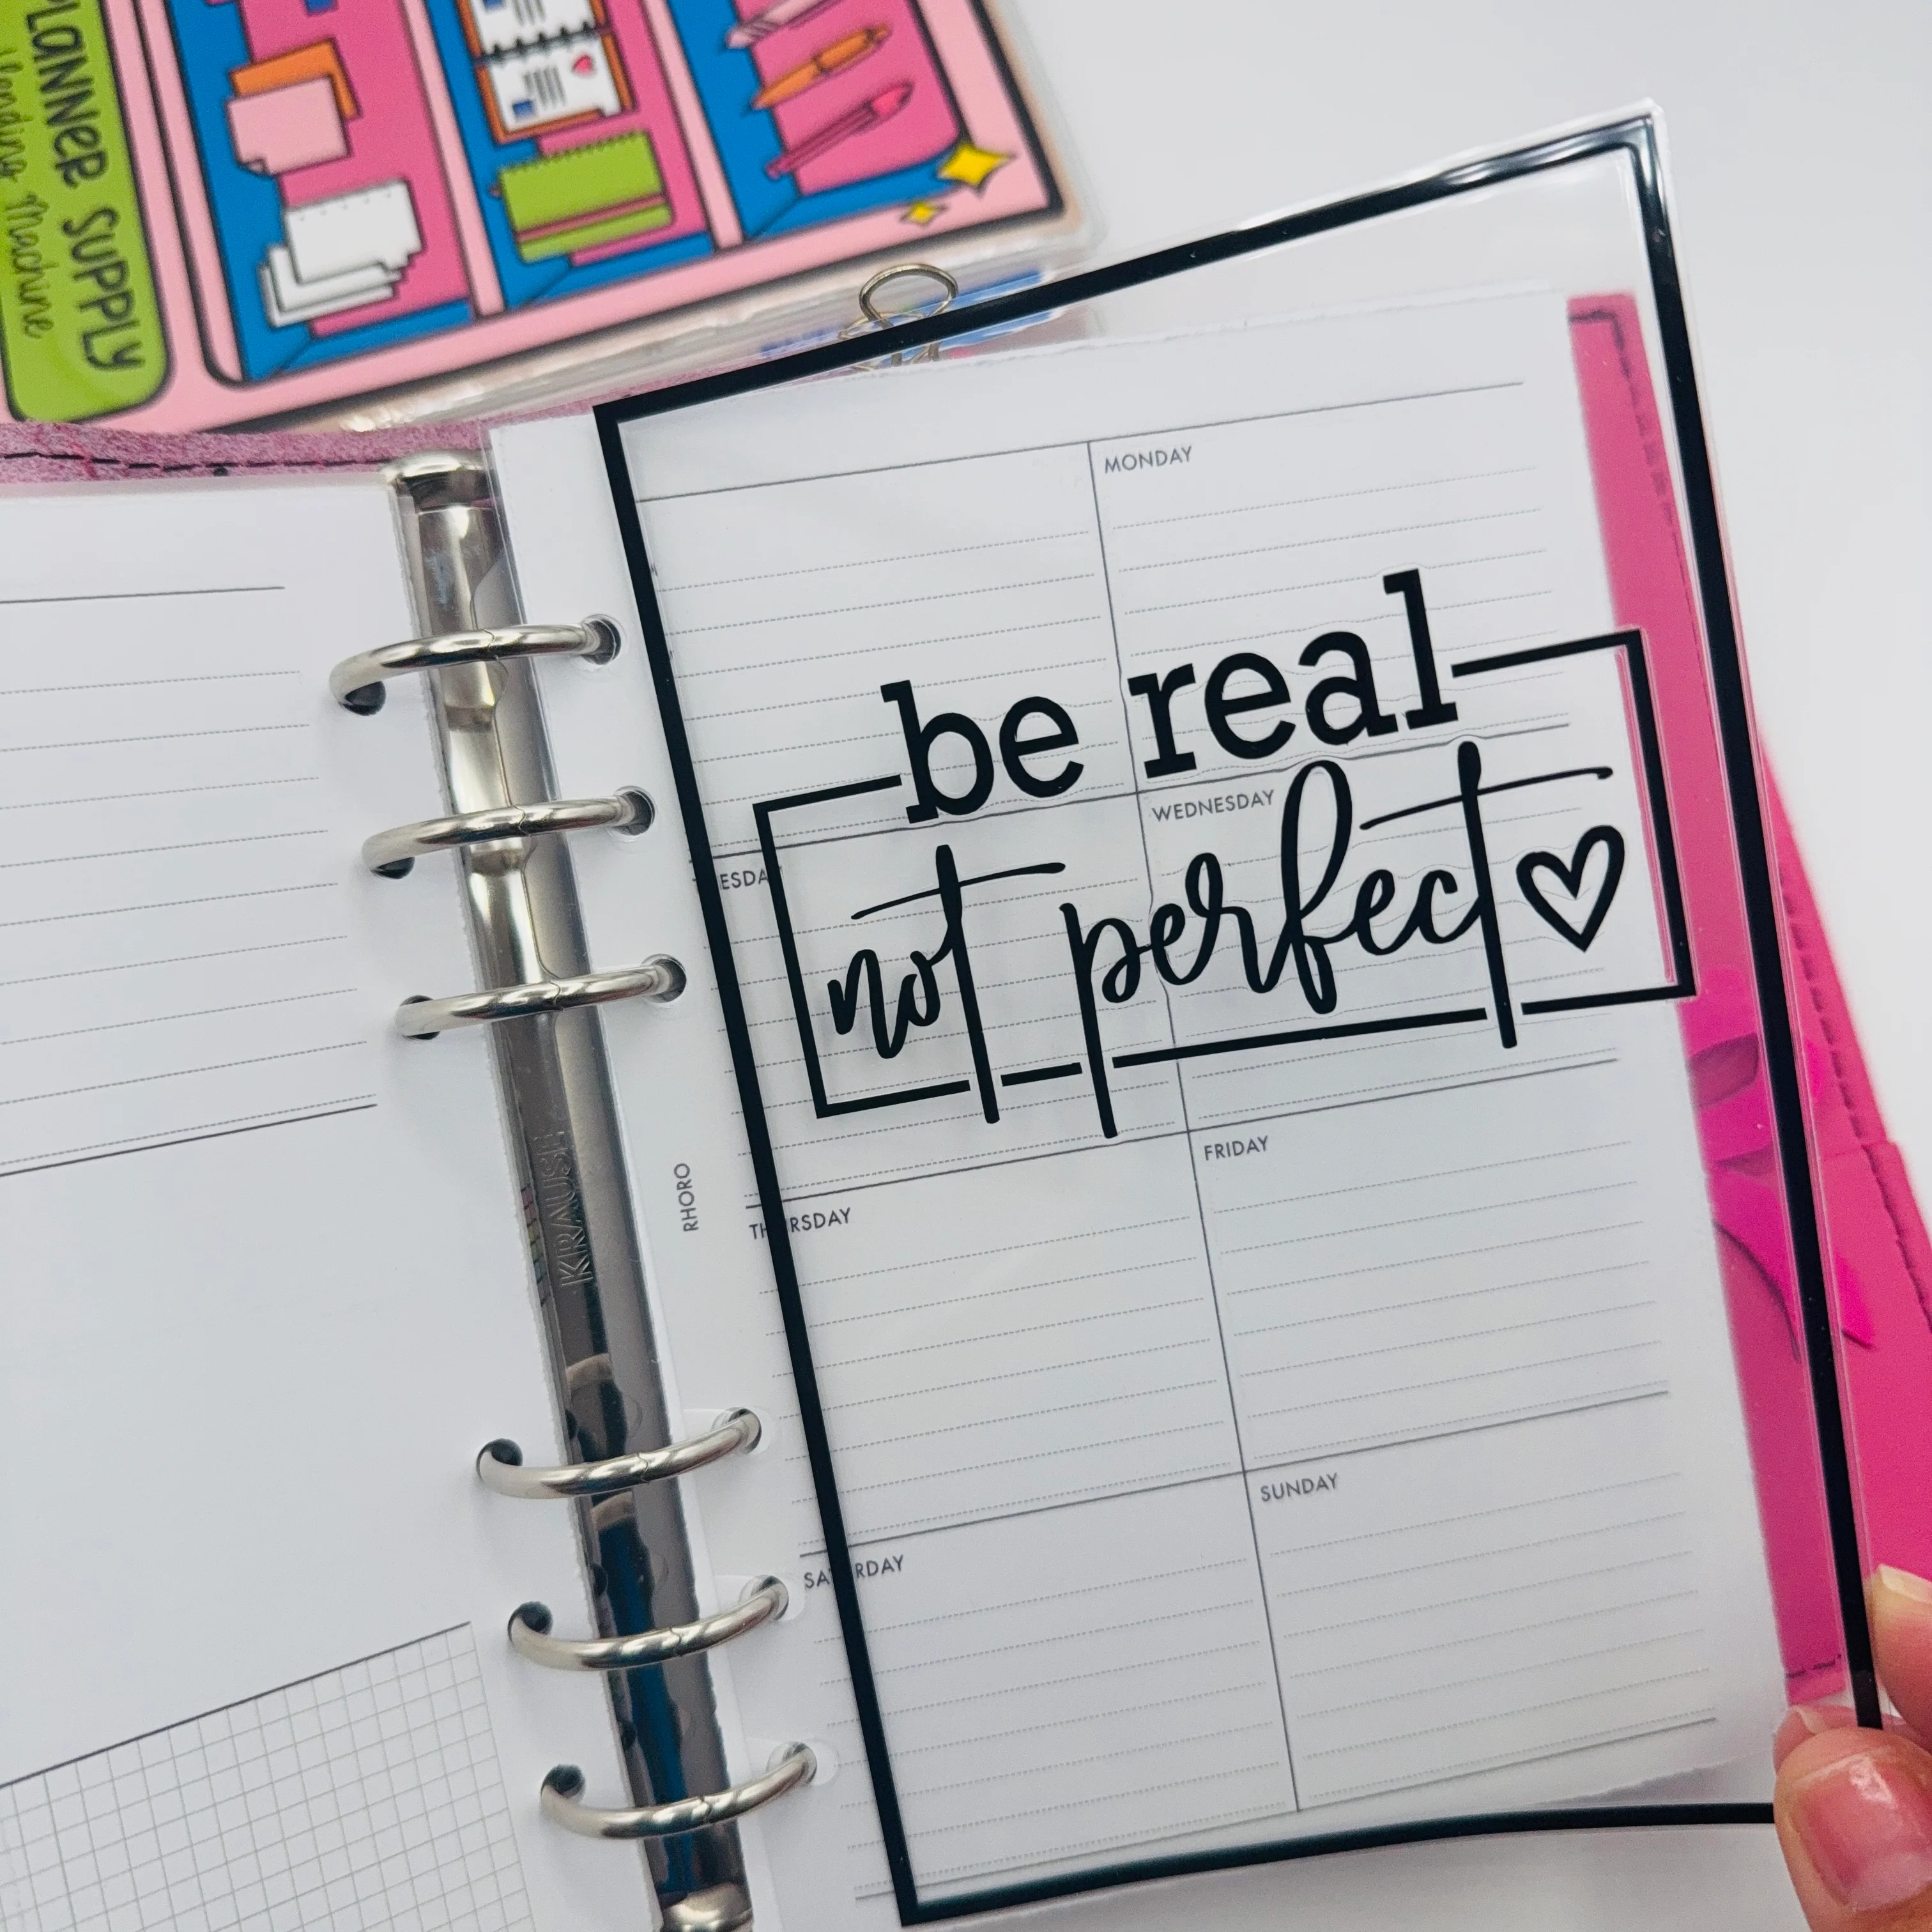 PLANNER SUPPLY
Vending Machine
MONDAY
be real
WEDNESDAY
TUESDAY
not perfect
FRIDAY
THURSDAY
RHORO
KRAUSE
SUNDAY
SATURDAY